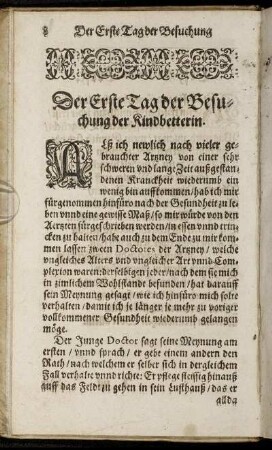 8 Der Erste Tag der Besuchung
Der Erste Tag der Besu-
chung der Kindbetterin.
ALß ich newlich nach vieler ge-
brauchter Artzney von einer sehr
schweren vnd lange Zeit außgestan-
denen Kranckheit wiederumb ein
wenig bin auffkommen / hab ich mir
fürgenommen hinfüro nach der Gesundheit zu le-
ben vnnd eine gewisse Maß / so mir würde von den
Aertzten fürgeschrieben werden / in essen vnnd trin-
cken zu halten / habe auch zu dem Ende zu mir kom-
men lassen zween Doctores der Artzney / welche
vngleiches Alters vnd vngleicher Art vnnd Com-
plexion waren: derselbigen jeder / nach dem sie mich
in zimlichem Wohlstande befunden / hat darauff
sein Meynung gesagt / wie ich hinfüro mich solte
verhalten / damit ich je länger je mehr zu voriger
vollkommener Gesundheit wiederumb gelangen
möge.
Der Junge Doctor sagt seine Meynung am
ersten / vnnd sprach / er gebe einem andern den
Rath / nach welchem er selber sich in dergleichem
Fall verhalte vnnd richte: Er pflege fleissig hinauß
auff das Feldt zu gehen in sein Lusthauß / das er
allda